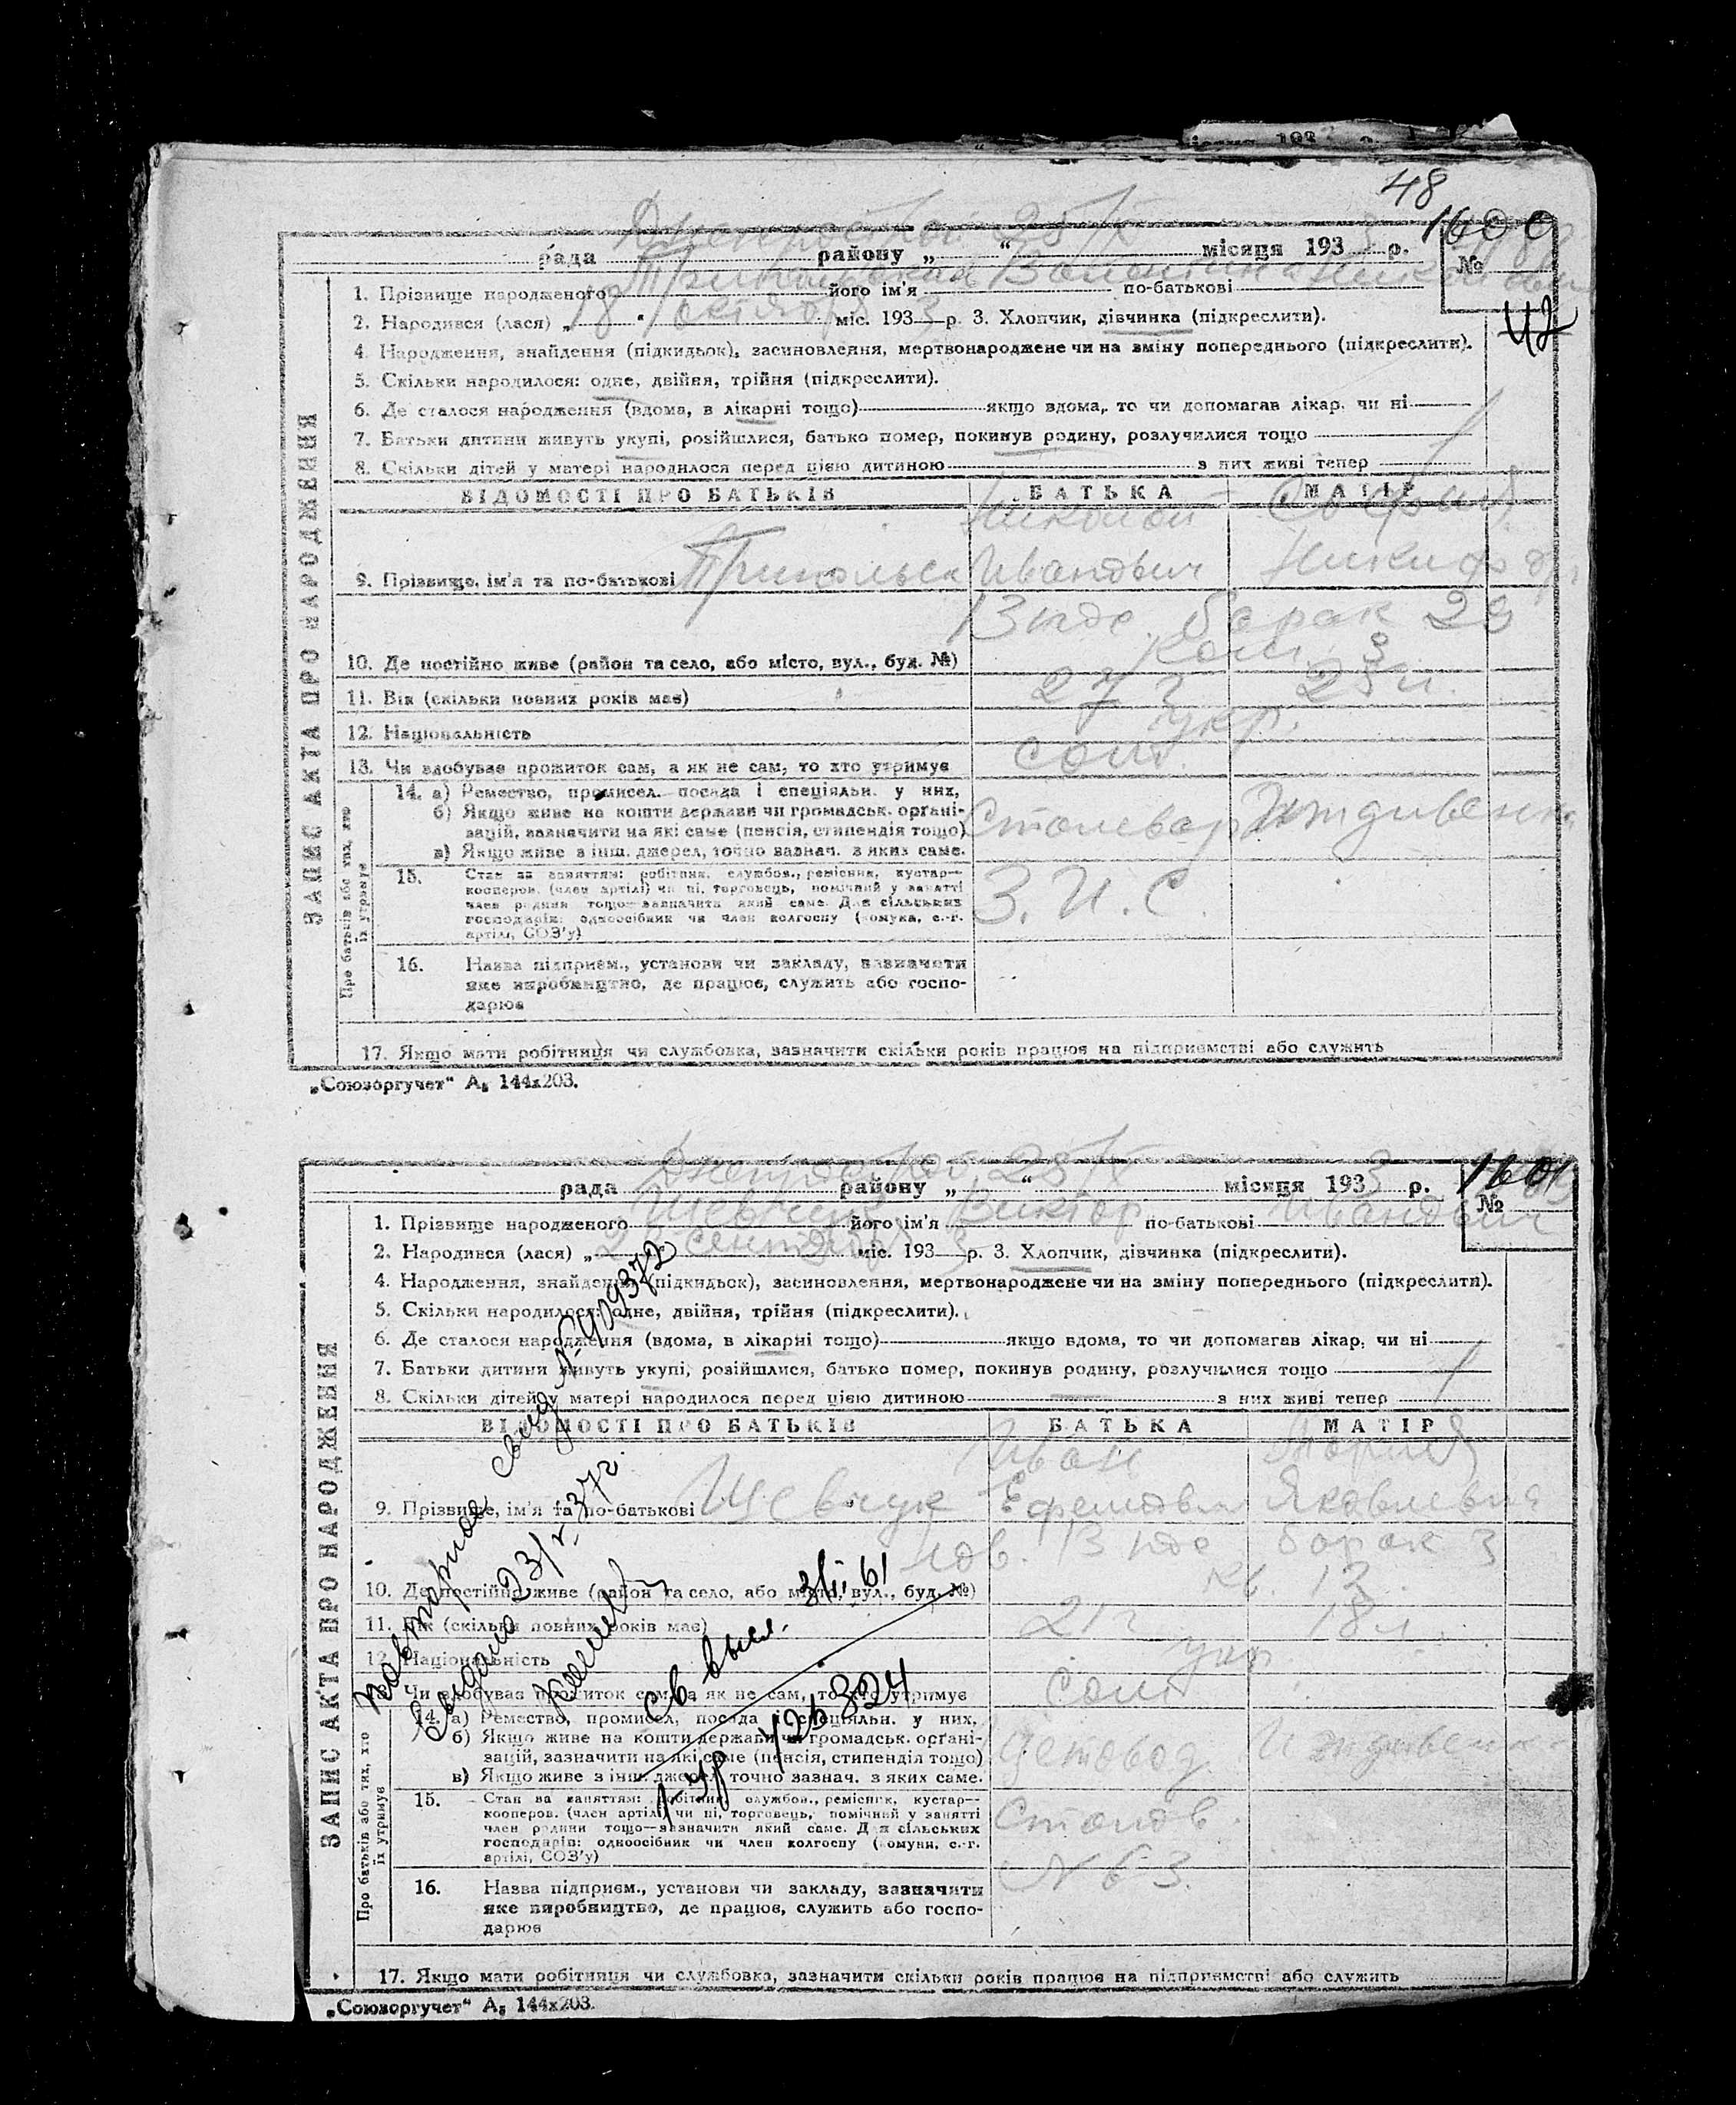 48
1600
рада району „ “ місяця 193 р.
№
1. Прізвище народженого його ім'я Валентина по-батькові
42
2. Народився (лася) „18 “ октября міс. 193 3 р. 3. Хлопчик, дівчинка (підкреслити).
4. Народження, знайдення (підкидьок), засиновлення, мертвонароджене чи на зміну попереднього (підкреслити).
5. Скільки народилося: одне, двійня, трійня (підкреслити).
6. Де сталося народження (вдома, в лікарні тощо) якщо вдома, то чи допомагав лікар, чи ні
7. Батьки дитини живуть укупі, розійшлися, батько помер, покинув родину, розлучилися тощо
8. Скільки дітей у матері народилося перед цією дитиною з них живі тепер
ЗАПИС АКТА ПРО НАРОДЖЕННЯ
ВІДОМОСТІ ПРО БАТЬКІВ БАТЬКА МАТІР
Николай
9. Прізвище, ім'я та по-батькові Иванович
барак 29
10. Де постійно живе (район та село, або місто, вул., буд. №) ком. 3
11. Вік (скільки повних років має) 27 г.
12. Національність укр.
13. Чи здобуває прожиток сам, а як не сам, то хто утримує сам.
Про батьків або тих, хто їх утримує
14. а) Ремество, промисел, посада і спеціяльн. у них,
б) Якщо живе на кошти держави чи громадськ. органі-
зацій, зазначити на які саме (пенсія, стипендія тощо) Сталевар Иждивенка
в) Якщо живе з інш. джерел, точно зазнач. з яких саме.
15. Стан за заняттям: робітник, службов., ремісник, кустар—
кооперов. (член артілі) чи ні, торговець, помічний у занятті
член родини тощо—зазначити який саме. Для сільських
господарів: одноосібник чи член колгоспу (комуна, с.-г.
артілі, СОЗ'у)
З. И. С
16. Назва підприєм., установи чи закладу, зазначити
яке виробництво, де працює, служить або госпо-
дарює
17. Якщо мати робітниця чи службовка, зазначити скільки років працює на підприємстві або служить
„Союзоргучет“ А₅ 144х203.
1601
рада району „ “ місяця 193 3 р.
№
1. Прізвище народженого Шевчук його ім'я Виктор по-батькові Иванович
2. Народився (лася) „ “ сентября міс. 193 3 р. 3. Хлопчик, дівчинка (підкреслити).
4. Народження, знайдення (підкидьок), засиновлення, мертвонароджене чи на зміну попереднього (підкреслити).
5. Скільки народилося: одне, двійня, трійня (підкреслити).
6. Де сталося народження (вдома, в лікарні тощо) якщо вдома, то чи допомагав лікар, чи ні
7. Батьки дитини живуть укупі, розійшлися, батько помер, покинув родину, розлучилися тощо
8. Скільки дітей у матері народилося перед цією дитиною з них живі тепер
ЗАПИС АКТА ПРО НАРОДЖЕННЯ
ВІДОМОСТІ ПРО БАТЬКІВ БАТЬКА МАТІР
Иван Мария
9. Прізвище, ім'я та по-батькові Шевчук Яковлевна
барак 3
10. Де постійно живе (район та село, або місто, вул., буд. №) кв. 13
11. Вік (скільки повних років має) 21 г 18 л.
12. Національність укр.
13. Чи здобуває прожиток сам, а як не сам, то хто утримує сам
Про батьків або тих, хто їх утримує
14. а) Ремество, промисел, посада і спеціяльн. у них,
б) Якщо живе на кошти держави чи громадськ. органі-
зацій, зазначити на які саме (пенсія, стипендія тощо) Иждивенка
в) Якщо живе з інш. джерел, точно зазнач. з яких саме.
15. Стан за заняттям: робітник, службов., ремісник, кустар—
кооперов. (член артілі) чи ні, торговець, помічний у занятті
член родини тощо—зазначити який саме. Для сільських
господарів: одноосібник чи член колгоспу (комуни, с.-г.
артілі, СОЗ'у)
Столов.
№ 63.
16. Назва підприєм., установи чи закладу, зазначити
яке виробництво, де працює, служить або госпо-
дарює
17. Якщо мати робітниця чи службовка, зазначити скільки років працює на підприємстві або служить
„Союзоргучет“ А₅ 144х203.
повторное свид
выдано 23/V-37г.
св выс. 3/II 61
I-УР 426824